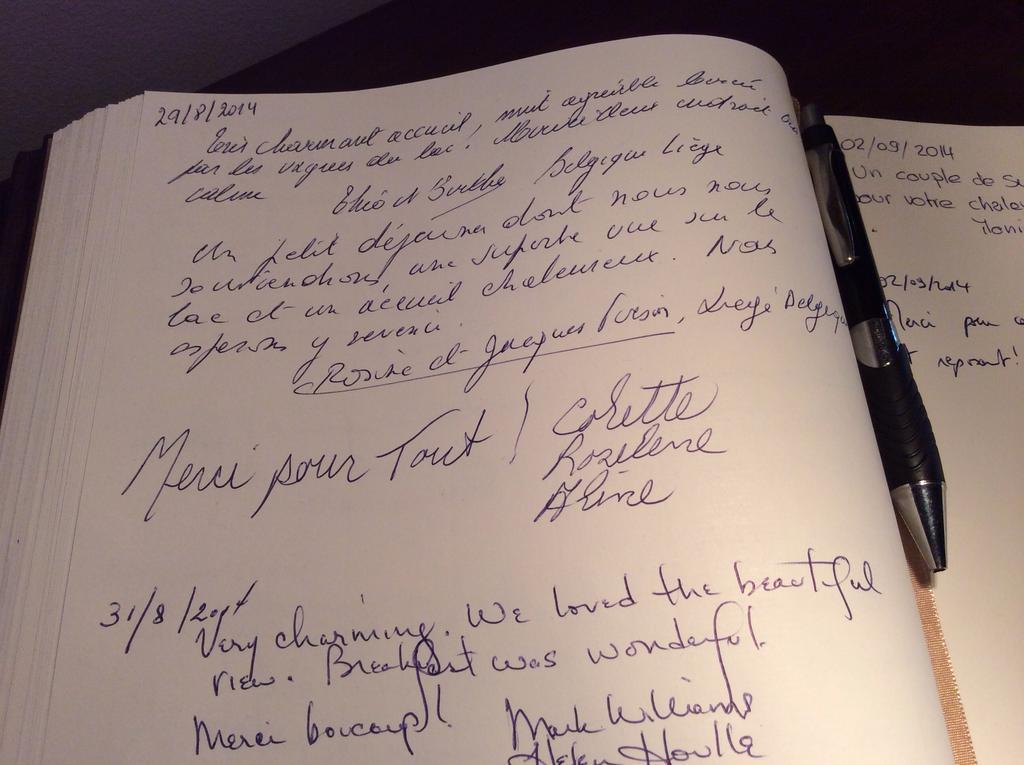 29/8/2014
Très charmant accueil, nuit agréable bercé
par les vagues du lac! Merveilleux endroit
calme
Belgique Liège
Un petit déjeuner dont nous nous
souviendrons, une superbe vue sur le
lac et un accueil chaleureux. Nous
espérons y revenir.
Rosine et Jacques Liège Belgique
Merci pour Tout! Colette
Roselene
Aline
31/8/
Very charming. We loved the beautiful
view. Breakfast was wonderful.
Merci boucoup! Mark Williams
Helen Houlle
02/09/2014
Un couple de
pour votre
02/09/2014
Merci pour